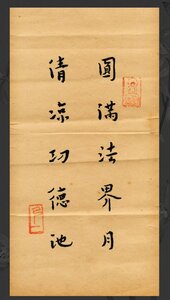 圓滿法界月
清凉功德池